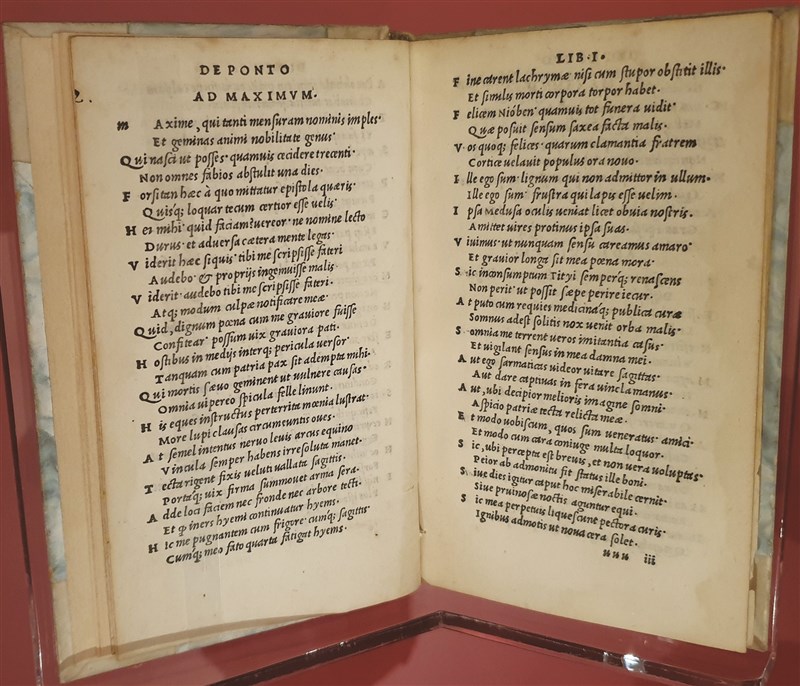 DE PONTO
AD MAXIMVM.
m Axime, qui tanti mensuram nominis imples·
Et geminas animi nobilitate genus·
Qui nasci ut posses· quamuis cecidere trecenti·
Non omnes fabios abstulit una dies.
F orsitan hæc à quo mittatur epistola quæris·
Quisq; loquar tecum certior esse uelis·
H ei mihi· quid faciam? uereor· ne nomine lecto
Durus· et aduersa cætera mente legas·
V iderit hæc siquis· tibi me scripsisse fateri
Audebo· & proprijs ingemuisse malis·
V iderit· audebo tibi me scripsisse fateri·
Atq; modum culpæ notificare meæ·
Quid, dignum pœna cum me grauiore fuisse
Confitear· possum uix grauiora pati.
H ostibus in medijs interq; pericula uersor·
Tanquam cum patria pax sit adempta mihi·
Qui mortis sæuo geminent ut uulnere causas·
Omnia uipereo spicula felle linunt.
H is eques instructus perterrita mœnia lustrat·
More lupi clausas circumeuntis oues.
A t semel intentus neruo leuis arcus equino
Vincula semper habens irresoluta manet·
T ecta rigent fixis ueluti uallata sagittis·
Portaq; uix firma summouet arma sera·
A dde loci faciem nec fronde nec arbore tecti·
Et ꝙ iners hyemi continuatur hyems.
H ic me pugnantem cum frigore· cumq; sagittis·
Cumq; meo fato quarta fatigat hyems·
LIB·I·
F ine carent lachrymæ· nisi cum stupor obstitit illis·
Et similis morti corpora torpor habet·
F elicem Nióben· quamuis tot funera uidit·
Quæ posuit sensum saxea facta malis·
V os quoq; felices· quarum clamantia fratrem
Cortice uelauit populus ora nouo·
I lle ego sum· lignum qui non admittor in ullum·
Ille ego sum· frustra qui lapis esse uelim·
I psa Medusa oculis ueniat licet obuia nostris.
Amittet uires protinus ipsa suas·
V iuimus· ut nunquam sensu careamus amaro·
Et grauior longa sit mea pœna mora·
S ic inconsumptum Tityi semperq; renascens
Non perit· ut possit sæpe perire iecur.
A t puto cum requies medicinaq; publica curæ
Somnus adest· solitis nox uenit orba malis·
S omnia me terrent ueros imitantia casus·
Et uigilant sensus in mea damna mei·
A ut ego sarmaticas uideor uitare sagittas·
Aut dare captiuas in fera uincla manus·
A ut, ubi decipior melioris imagine somni·
Aspicio patriæ tecta relicta meæ·
E t modo uobiscum, quos sum ueneratus· amici·
Et modo cum cara coniuge multa loquor.
S ic, ubi percepta est breuis, et non uera uoluptas·
Peior ab admonitu fit status ille boni.
S iue dies igitur caput hoc miserabile cernit·
Siue pruinosæ noctis aguntur equi·
S ic mea perpetuis liquescunt pectora curis·
Ignibus admotis ut noua cera solet·
uuu iii